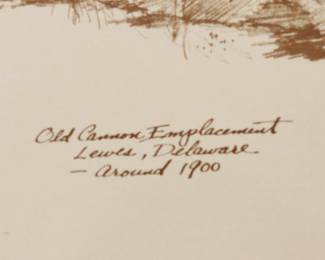 Old Cannon Emplacement
Lewes, Delaware
— around 1900